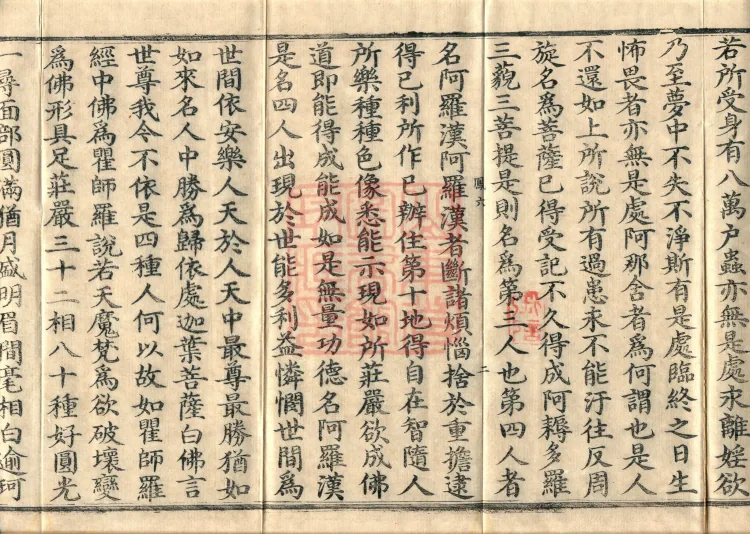 若所受身有八萬户蟲亦無是處永離婬欲
乃至夢中不失不淨斯有是處臨終之日生
怖畏者亦無是處阿那含者為何謂也是人
不還如上所說所有過患永不能汙往反周
旋名為菩薩已得受記不久得成阿耨多羅
三藐三菩提是則名為第三人也第四人者
名阿羅漢阿羅漢者斷諸煩惱捨於重擔逮
得已利所作已辦住第十地得自在智隨人
所樂種種色像悉能示現如所莊嚴欲成佛
道即能得成能成如是無量功德名阿羅漢
是名四人出現於世能多利益憐憫世間為
世間依安樂人天於人天中最尊最勝猶如
如來名人中勝為歸依處迦葉菩薩白佛言
世尊我今不依是四種人何以故如瞿師羅
經中佛為瞿師羅說若天魔梵為欲破壞變
為佛形具足莊嚴三十二相八十種好圓光
一尋面部圓滿猶月盛明眉間毫相白逾珂
二